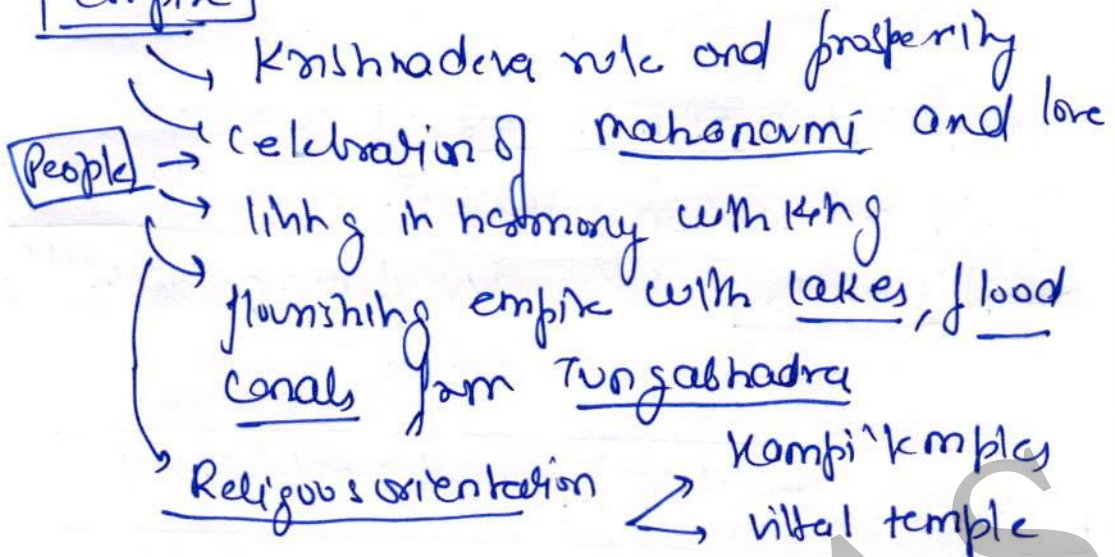 Empire
Krishnadeva rule and prosperity
Celebration of mahanavmi and love
People
living in harmony with king
flourishing empire with lakes, flood
canals from Tungabhadra
Religious orientation
Hampi temples
vittal temple